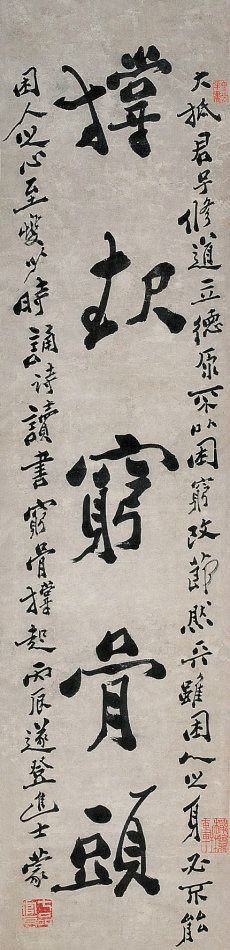 撐起窮骨頭
大抵君子修道立德原不以困窮改節然雖困人之身必不能
困人之心至燮少時誦詩讀書窮骨撐起丙辰遂登進士蒙